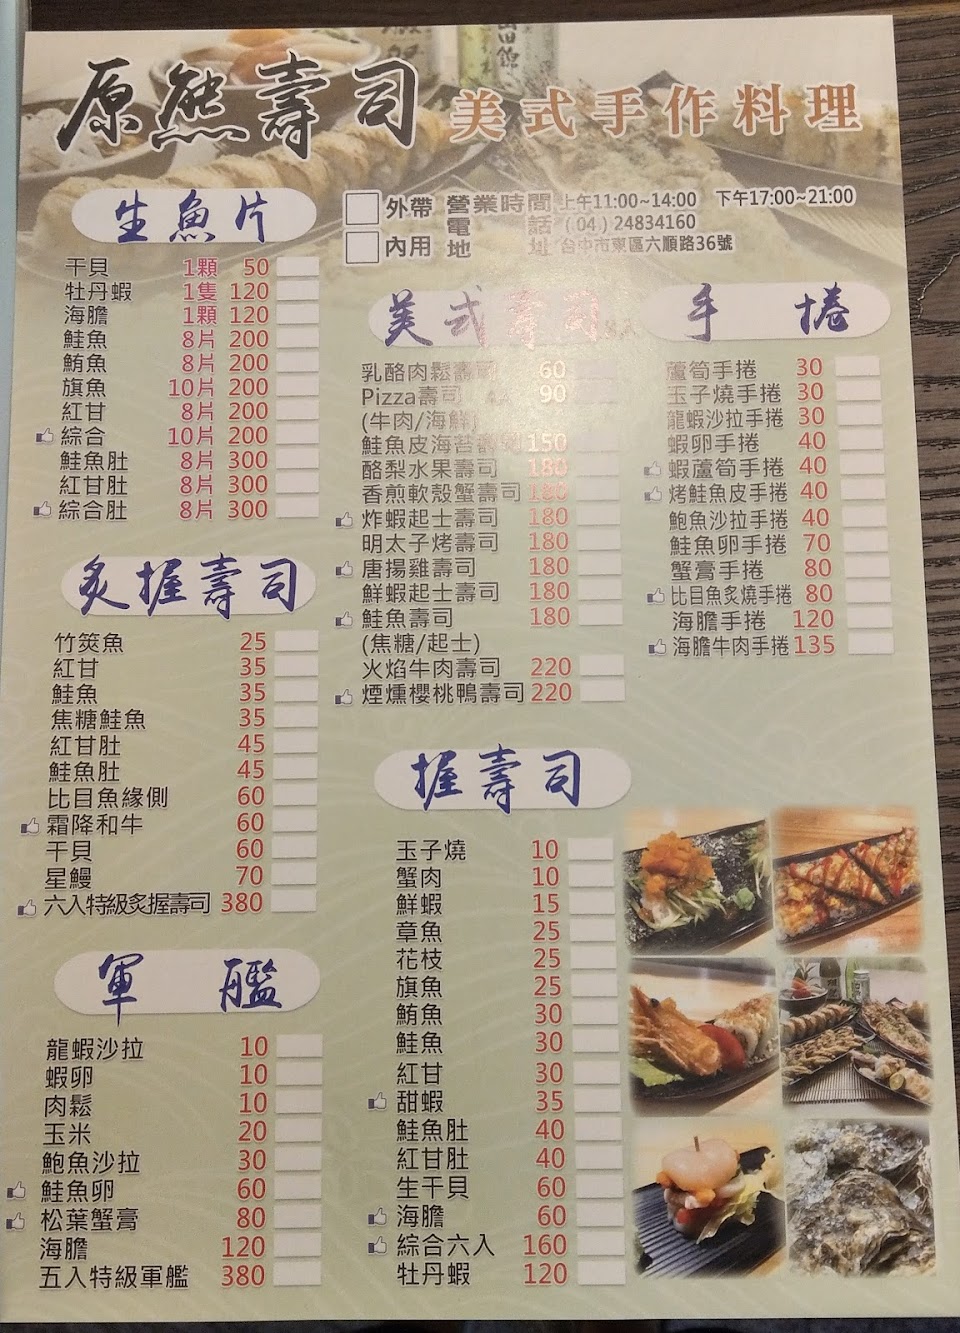 原熊壽司 美式手作料理
生魚片
干貝 1顆 50
牡丹蝦 1隻 120
海膽 1顆 120
鮭魚 8片 200
鮪魚 8片 200
旗魚 10片 200
紅甘 8片 200
綜合 10片 200
鮭魚肚 8片 300
紅甘肚 8片 300
綜合肚 8片 300
炙握壽司
竹筴魚 25
紅甘 35
鮭魚 35
焦糖鮭魚 35
紅甘肚 45
鮭魚肚 45
比目魚緣側 60
霜降和牛 60
干貝 60
星鰻 70
六入特級炙握壽司 380
軍艦
龍蝦沙拉 10
蝦卵 10
肉鬆 10
玉米 20
鮑魚沙拉 30
鮭魚卵 60
松葉蟹膏 80
海膽 120
五入特級軍艦 380
外帶
內用
營業時間 上午11:00~14:00 下午17:00~21:00
電話 (04) 24834160
地址 台中市東區六順路36號
美式壽司
乳酪肉鬆壽司 60
Pizza壽司 90
(牛肉/海鮮)
鮭魚皮海苔壽司 150
酪梨水果壽司 180
香煎軟殼蟹壽司 180
炸蝦起士壽司 180
明太子烤壽司 180
唐揚雞壽司 180
鮮蝦起士壽司 180
鮭魚壽司 180
(焦糖/起士)
火焰牛肉壽司 220
煙燻櫻桃鴨壽司 220
手捲
蘆筍手捲 30
玉子燒手捲 30
龍蝦沙拉手捲 30
蝦卵手捲 40
蝦蘆筍手捲 40
烤鮭魚皮手捲 40
鮑魚沙拉手捲 40
鮭魚卵手捲 70
蟹膏手捲 80
比目魚炙燒手捲 80
海膽手捲 120
海膽牛肉手捲 135
握壽司
玉子燒 10
蟹肉 10
鮮蝦 15
章魚 25
花枝 25
旗魚 25
鮪魚 30
鮭魚 30
紅甘 30
甜蝦 35
鮭魚肚 40
紅甘肚 40
生干貝 60
海膽 60
綜合六入 160
牡丹蝦 120